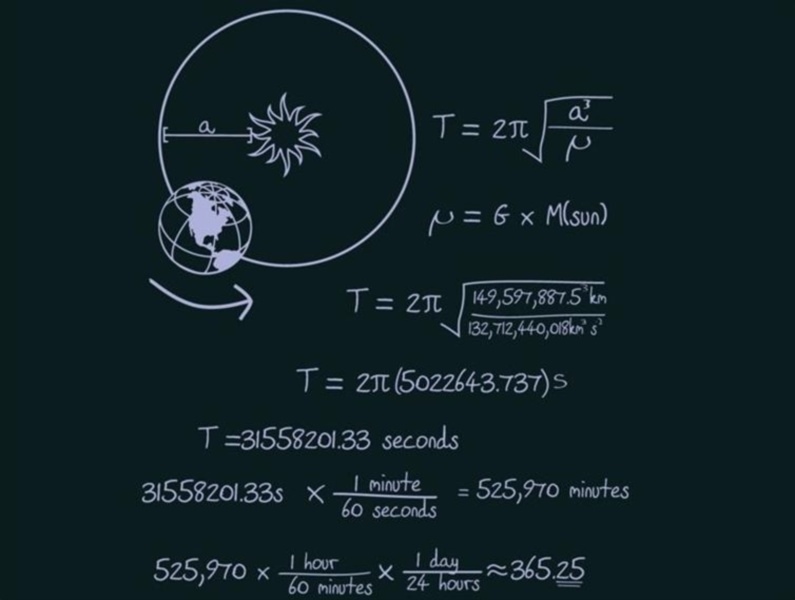 a
T = 2π√(a³/μ)
μ = G × M(sun)
T = 2π√(149,597,887.5³km/132,712,440,018km³s²)
T = 2π(5022643.737)s
T =31558201.33 seconds
31558201.33s × 1 minute/60 seconds = 525,970 minutes
525,970 × 1 hour/60 minutes × 1 day/24 hours ≈365.25